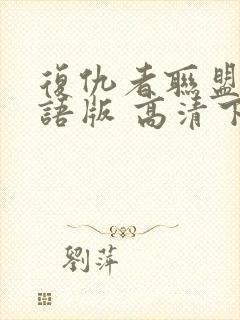 復仇者聯盟
語版 高清下
劉萍